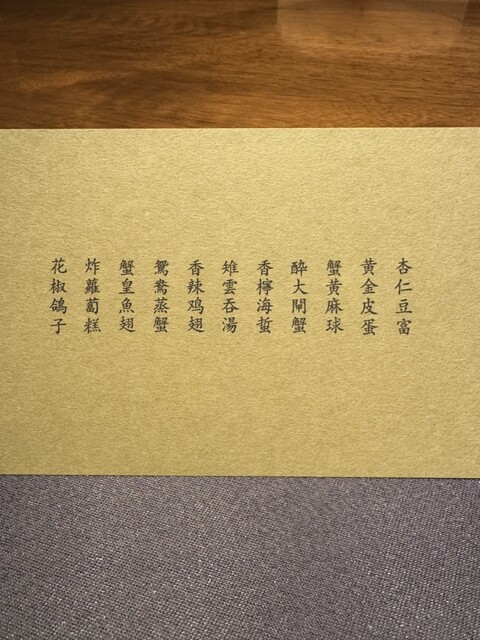 杏仁豆富
黄金皮蛋
蟹黄麻球
醉大閘蟹
香檸海蜇
雉雲吞湯
香辣鸡翅
鴛鴦蒸蟹
蟹皇魚翅
炸蘿蔔糕
花椒鴿子